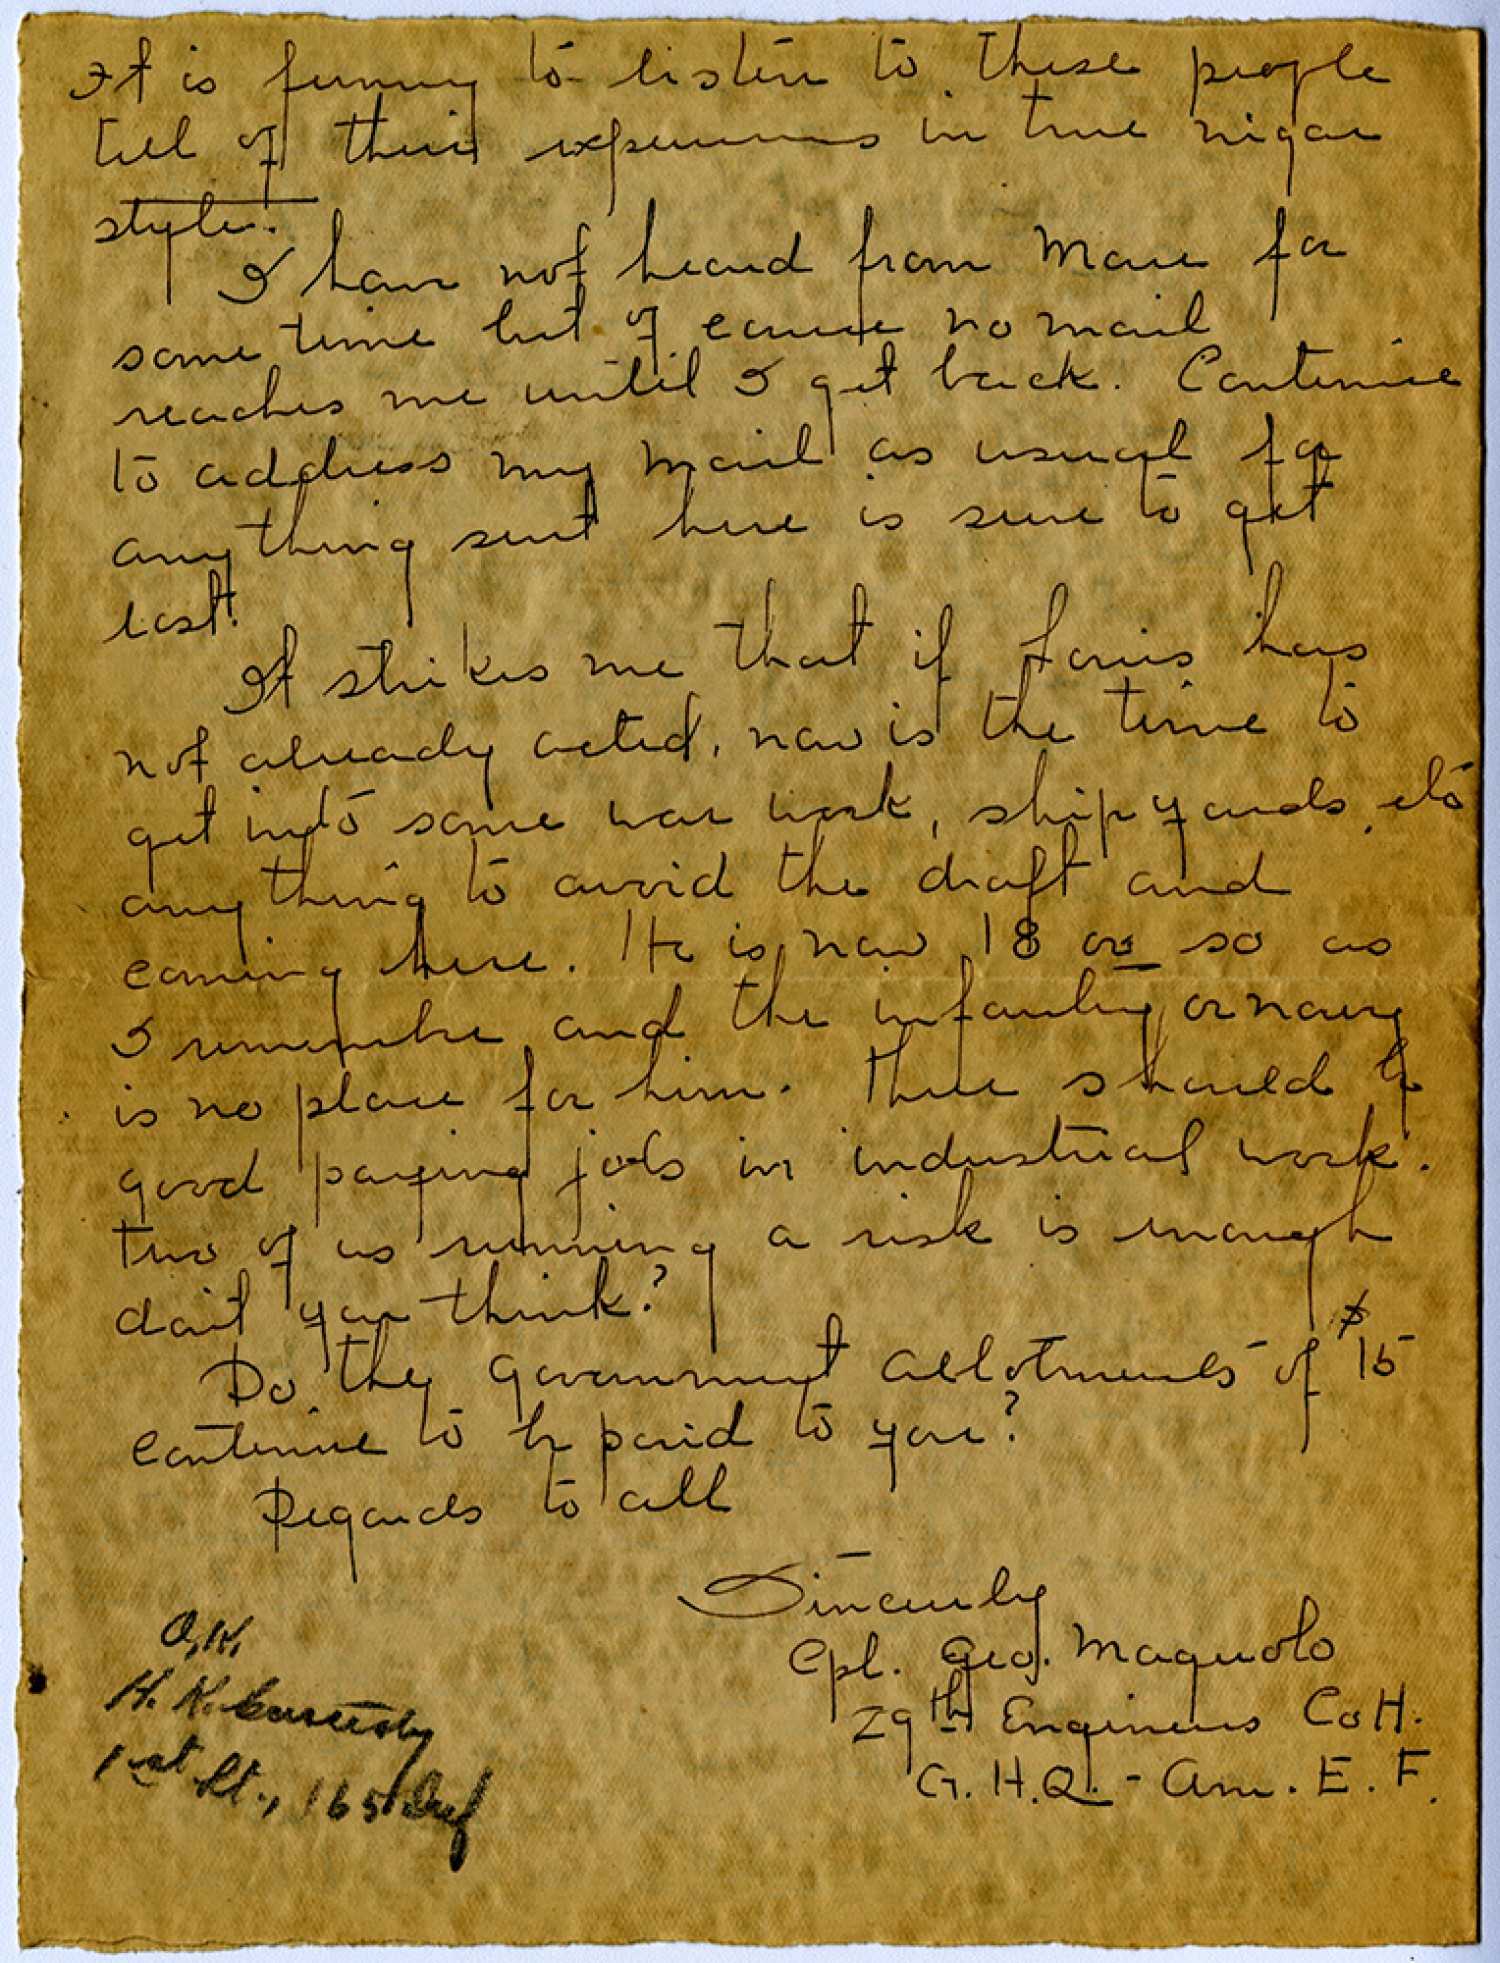 It is funny to listen to these people
tell of their experiences in true nigar
style.
I have not heard from Marie for
some time but of course no mail
reaches me until I get back. Continue
to address my mail as usual for
anything sent here is sure to get
lost.
It strikes me that if Louis has
not already acted, now is the time to
get into some war work, shipyards, etc
anything to avoid the draft and
coming here. He is now 18 or so as
I remember and the infantry or navy
is no place for him. There should be
good paying jobs in industrial work.
Two of us running a risk is enough
don't you think?
Do the government allotments of $15
continue to be paid to you?
Regards to all
Sincerely
Cpl. Geo. Magnolo
29th Engineers Co H.
G.H.Q. - Am. E. F.
O.K.
H. K.
1st Lt., 165 Inf